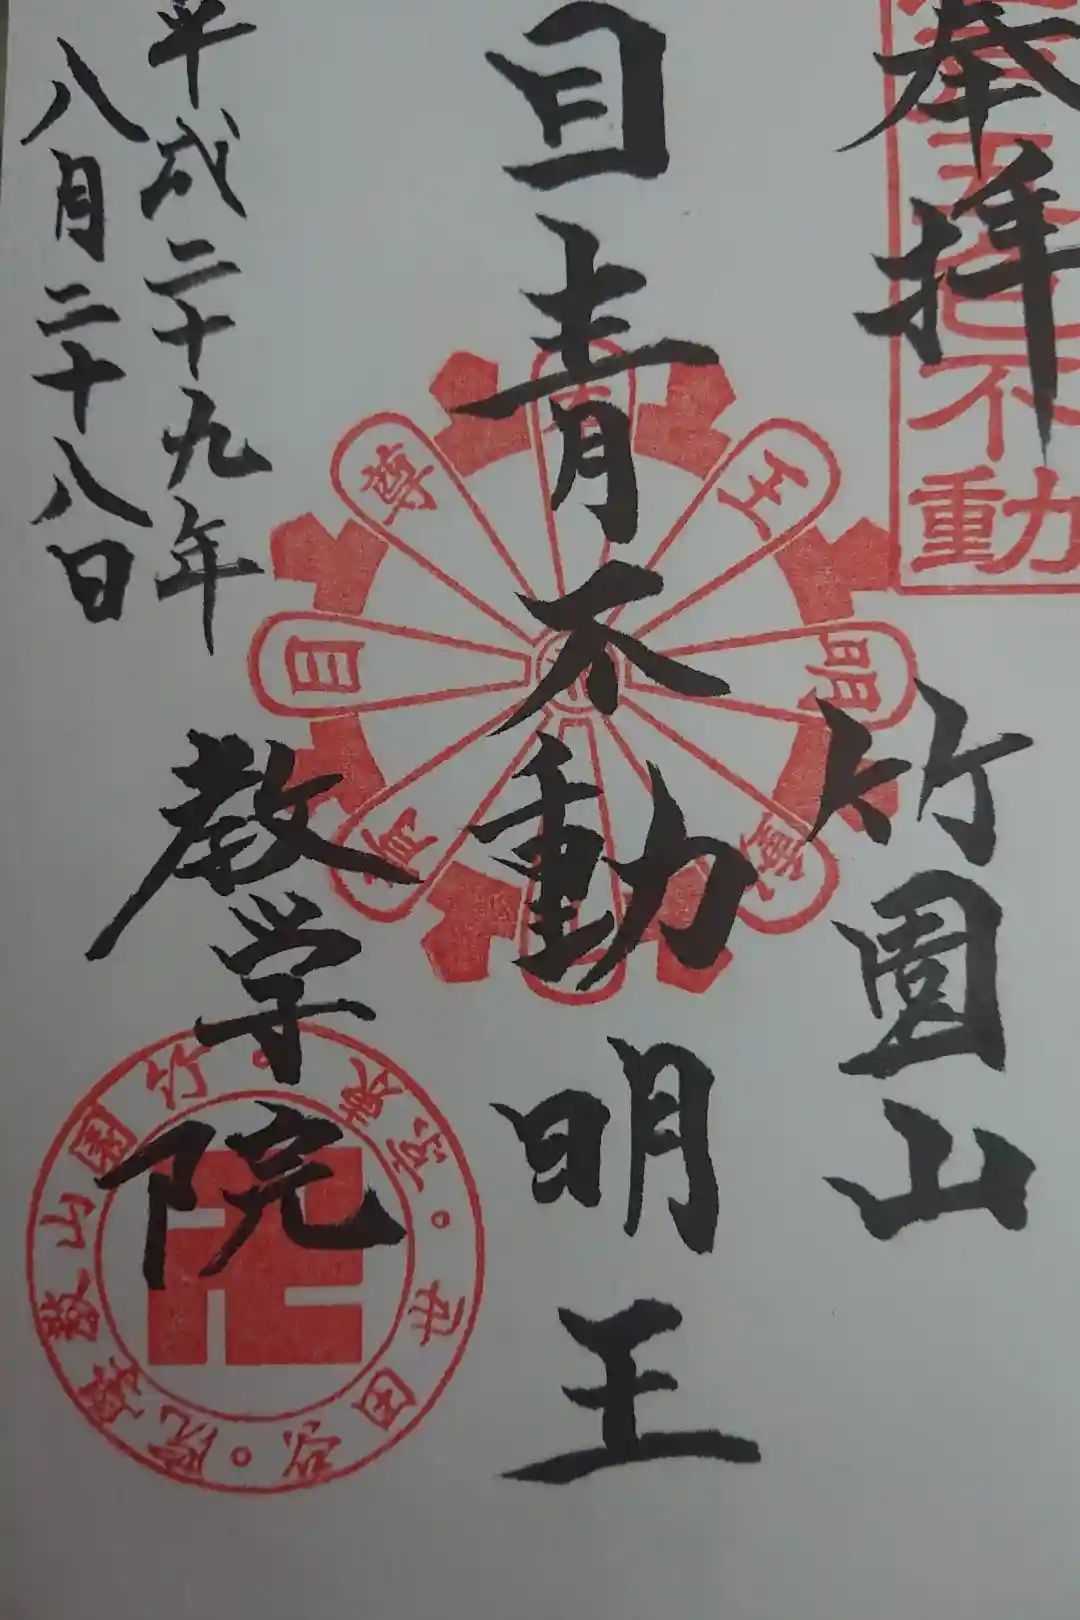 奉拝
不動
竹園山
目青不動明王
平成二十九年
八月二十八日
教学院
王
明
尊
目
青
竹園山教學院。東京。世田谷。